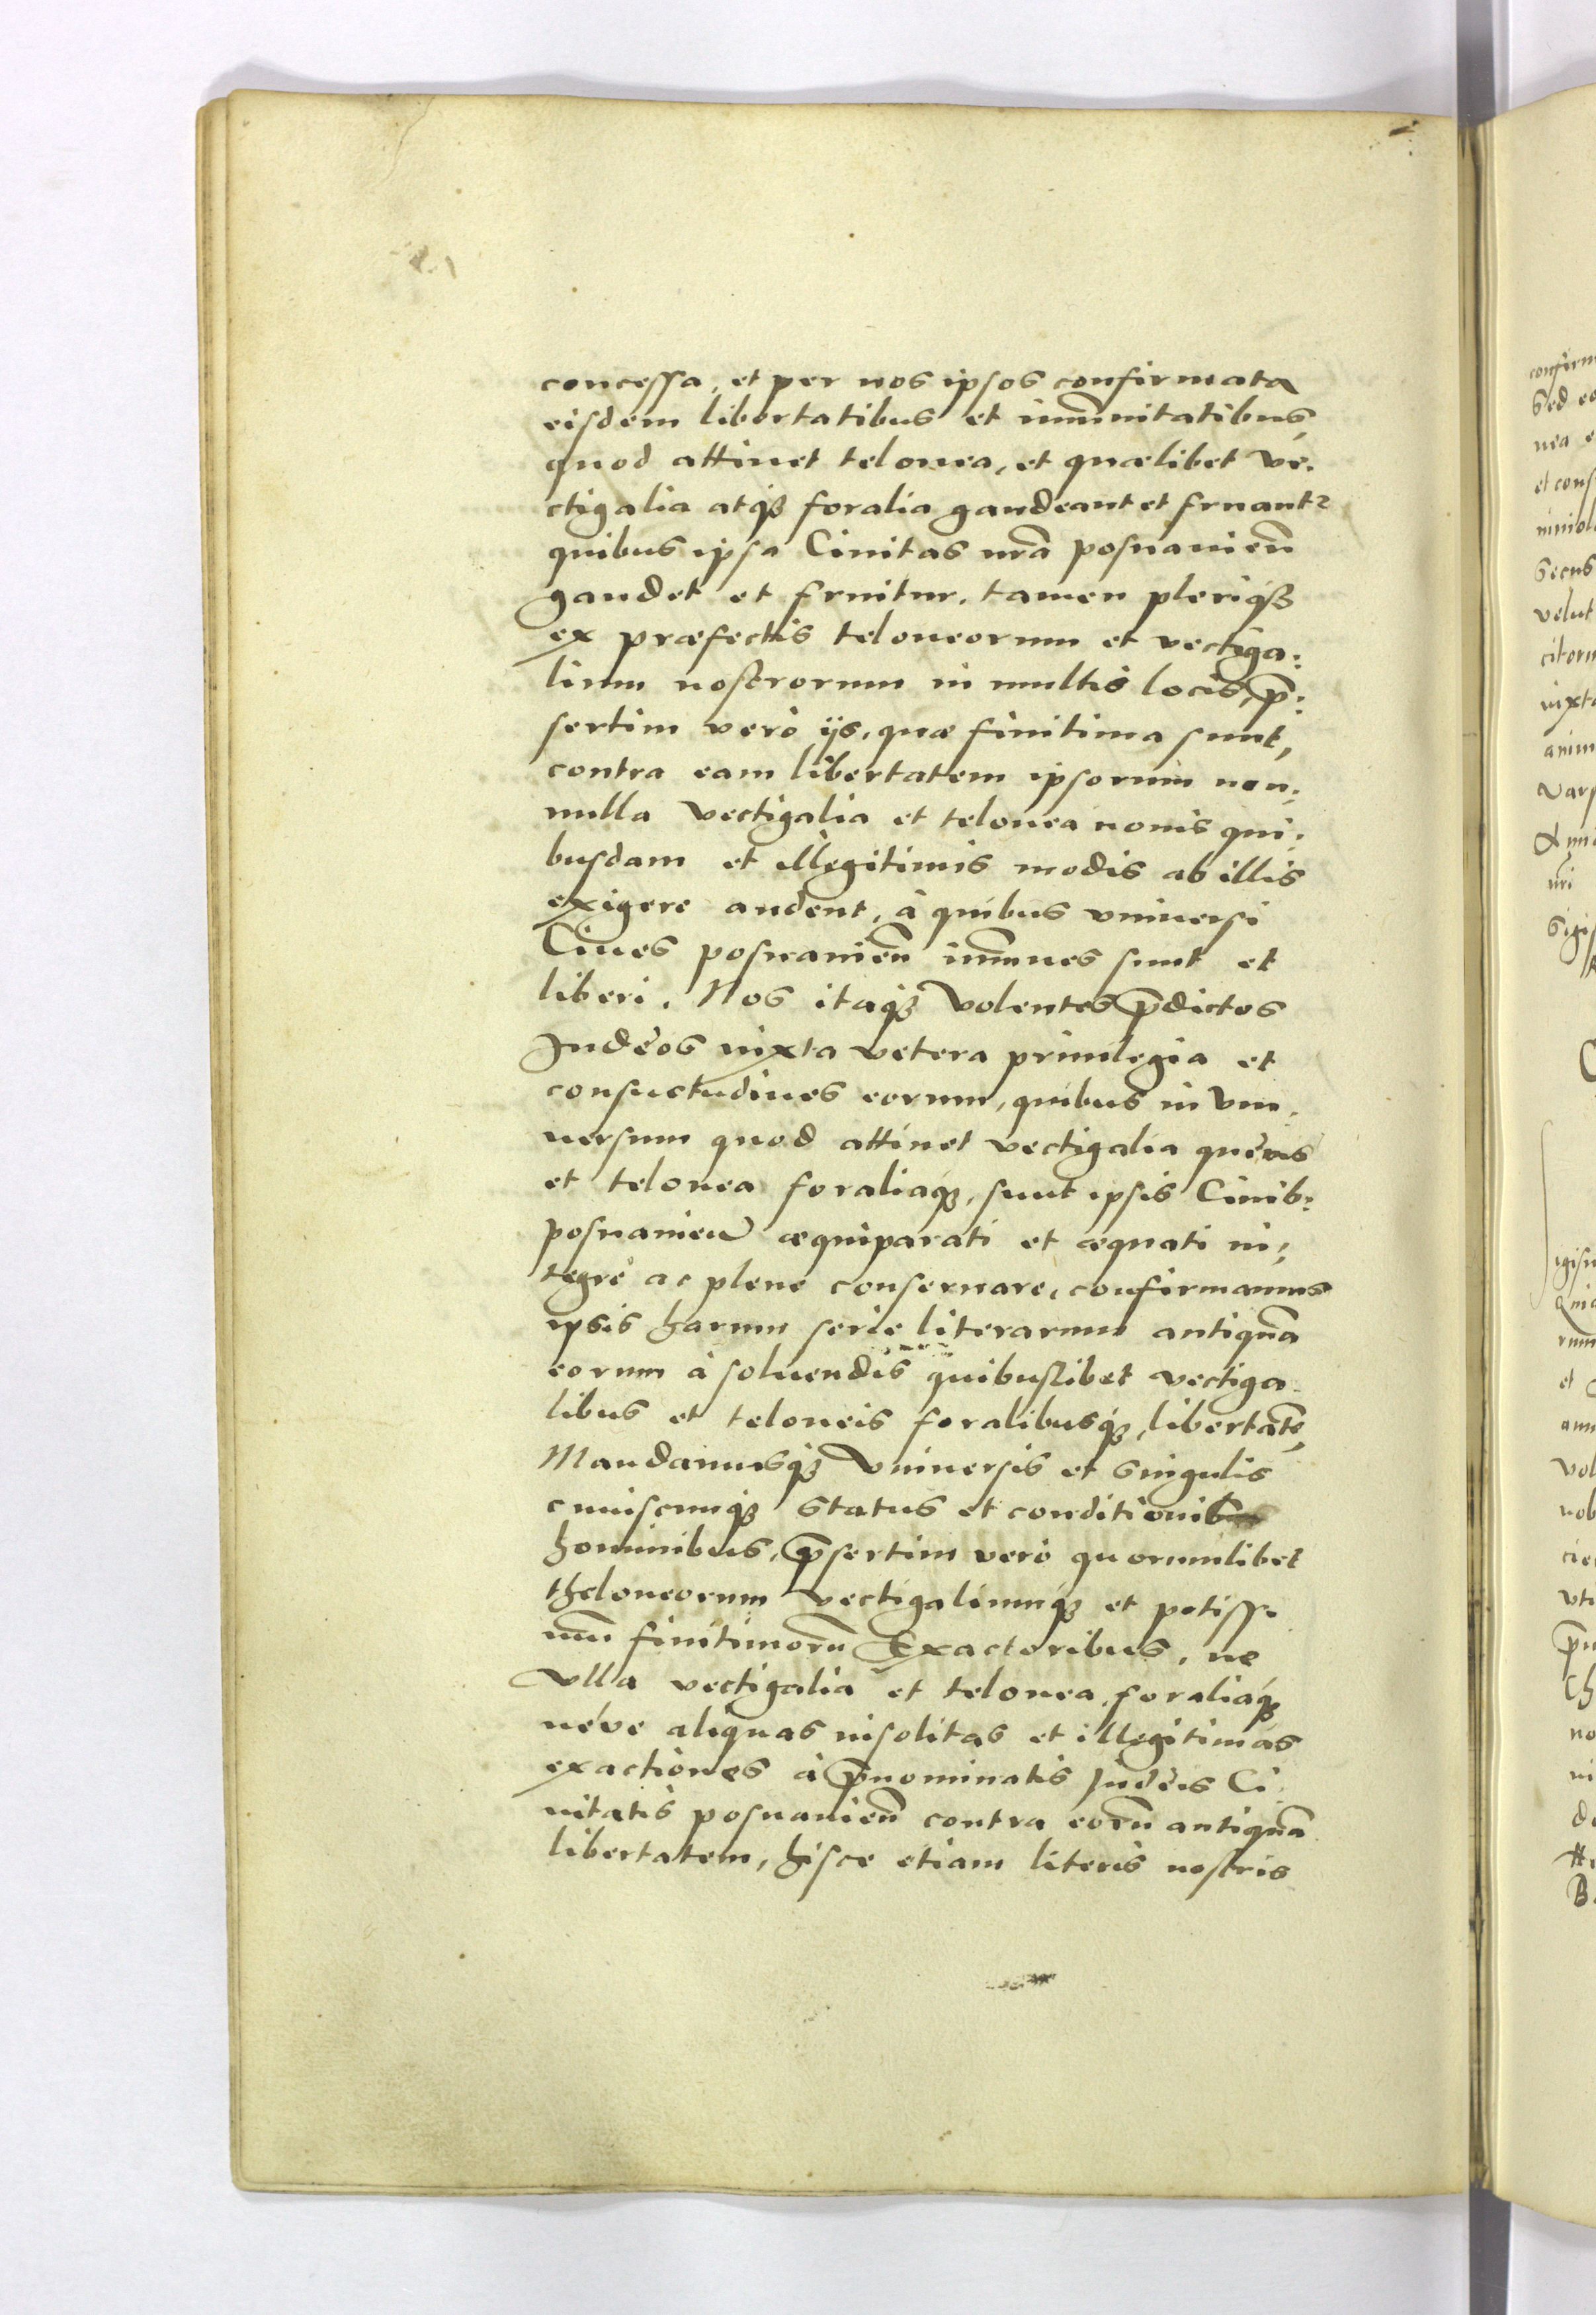 concessa, et per nos ipsos confirmata
eisdem libertatibus et im̄unitatibus,
quod attinet telonea, et quælibet ve-
ctigalia atqꝫ foralia gaudeant et fruant᷑
quibus ipsa Ciuitas nr̄a posnanien̄
gaudet et fruitur, tamen pleriqꝫ
ex præfectis teloneorum et vectiga:
lium nostrorum in multis locis, p̄:
sertim verò ijs, quæ finitima sunt,
contra eam libertatem ipsorum non:
nulla vectigalia et telonea nouis qui:
busdam et illegitimis modis ab illis
exigere audent, à quibus vniuersi
Ciues posnanien̄ im̄unes sunt et
liberi. Nos itaqꝫ volentes p̄dictos
Judèos iuxta vetera priuilegia et
consuetudines eorum, quibus in vni-
uersum quod attinet vectigalia quèuis
et telonea foraliaqꝫ, sunt ipsis Ciuib:
posnanien̄ æquiparati et æquati in:
tegrè ac plene conseruare, confirmamus
ipsis harum serie literarum antiquā
eorum à soluendis quibuslibet vectiga-
libus et teloneis foralibusqꝫ, libertatē,
Mandamusqꝫ vniuersis et singulis
cuiuscunqꝫ status et conditionibus
hominibus, p̄sertim verò quorumlibet
theloneorum vectigaliumqꝫ et potissi-
mū finitimorū Exactoribus, ne
vlla vectigalia et telonea, foraliaqꝫ
néve aliquas insolitas et illegitimas
exactiones à p̄nominatis Judèis Ci-
uitatis posnanien̄ contra eorū antiquā
libertatem, hisce etiam literis nostris